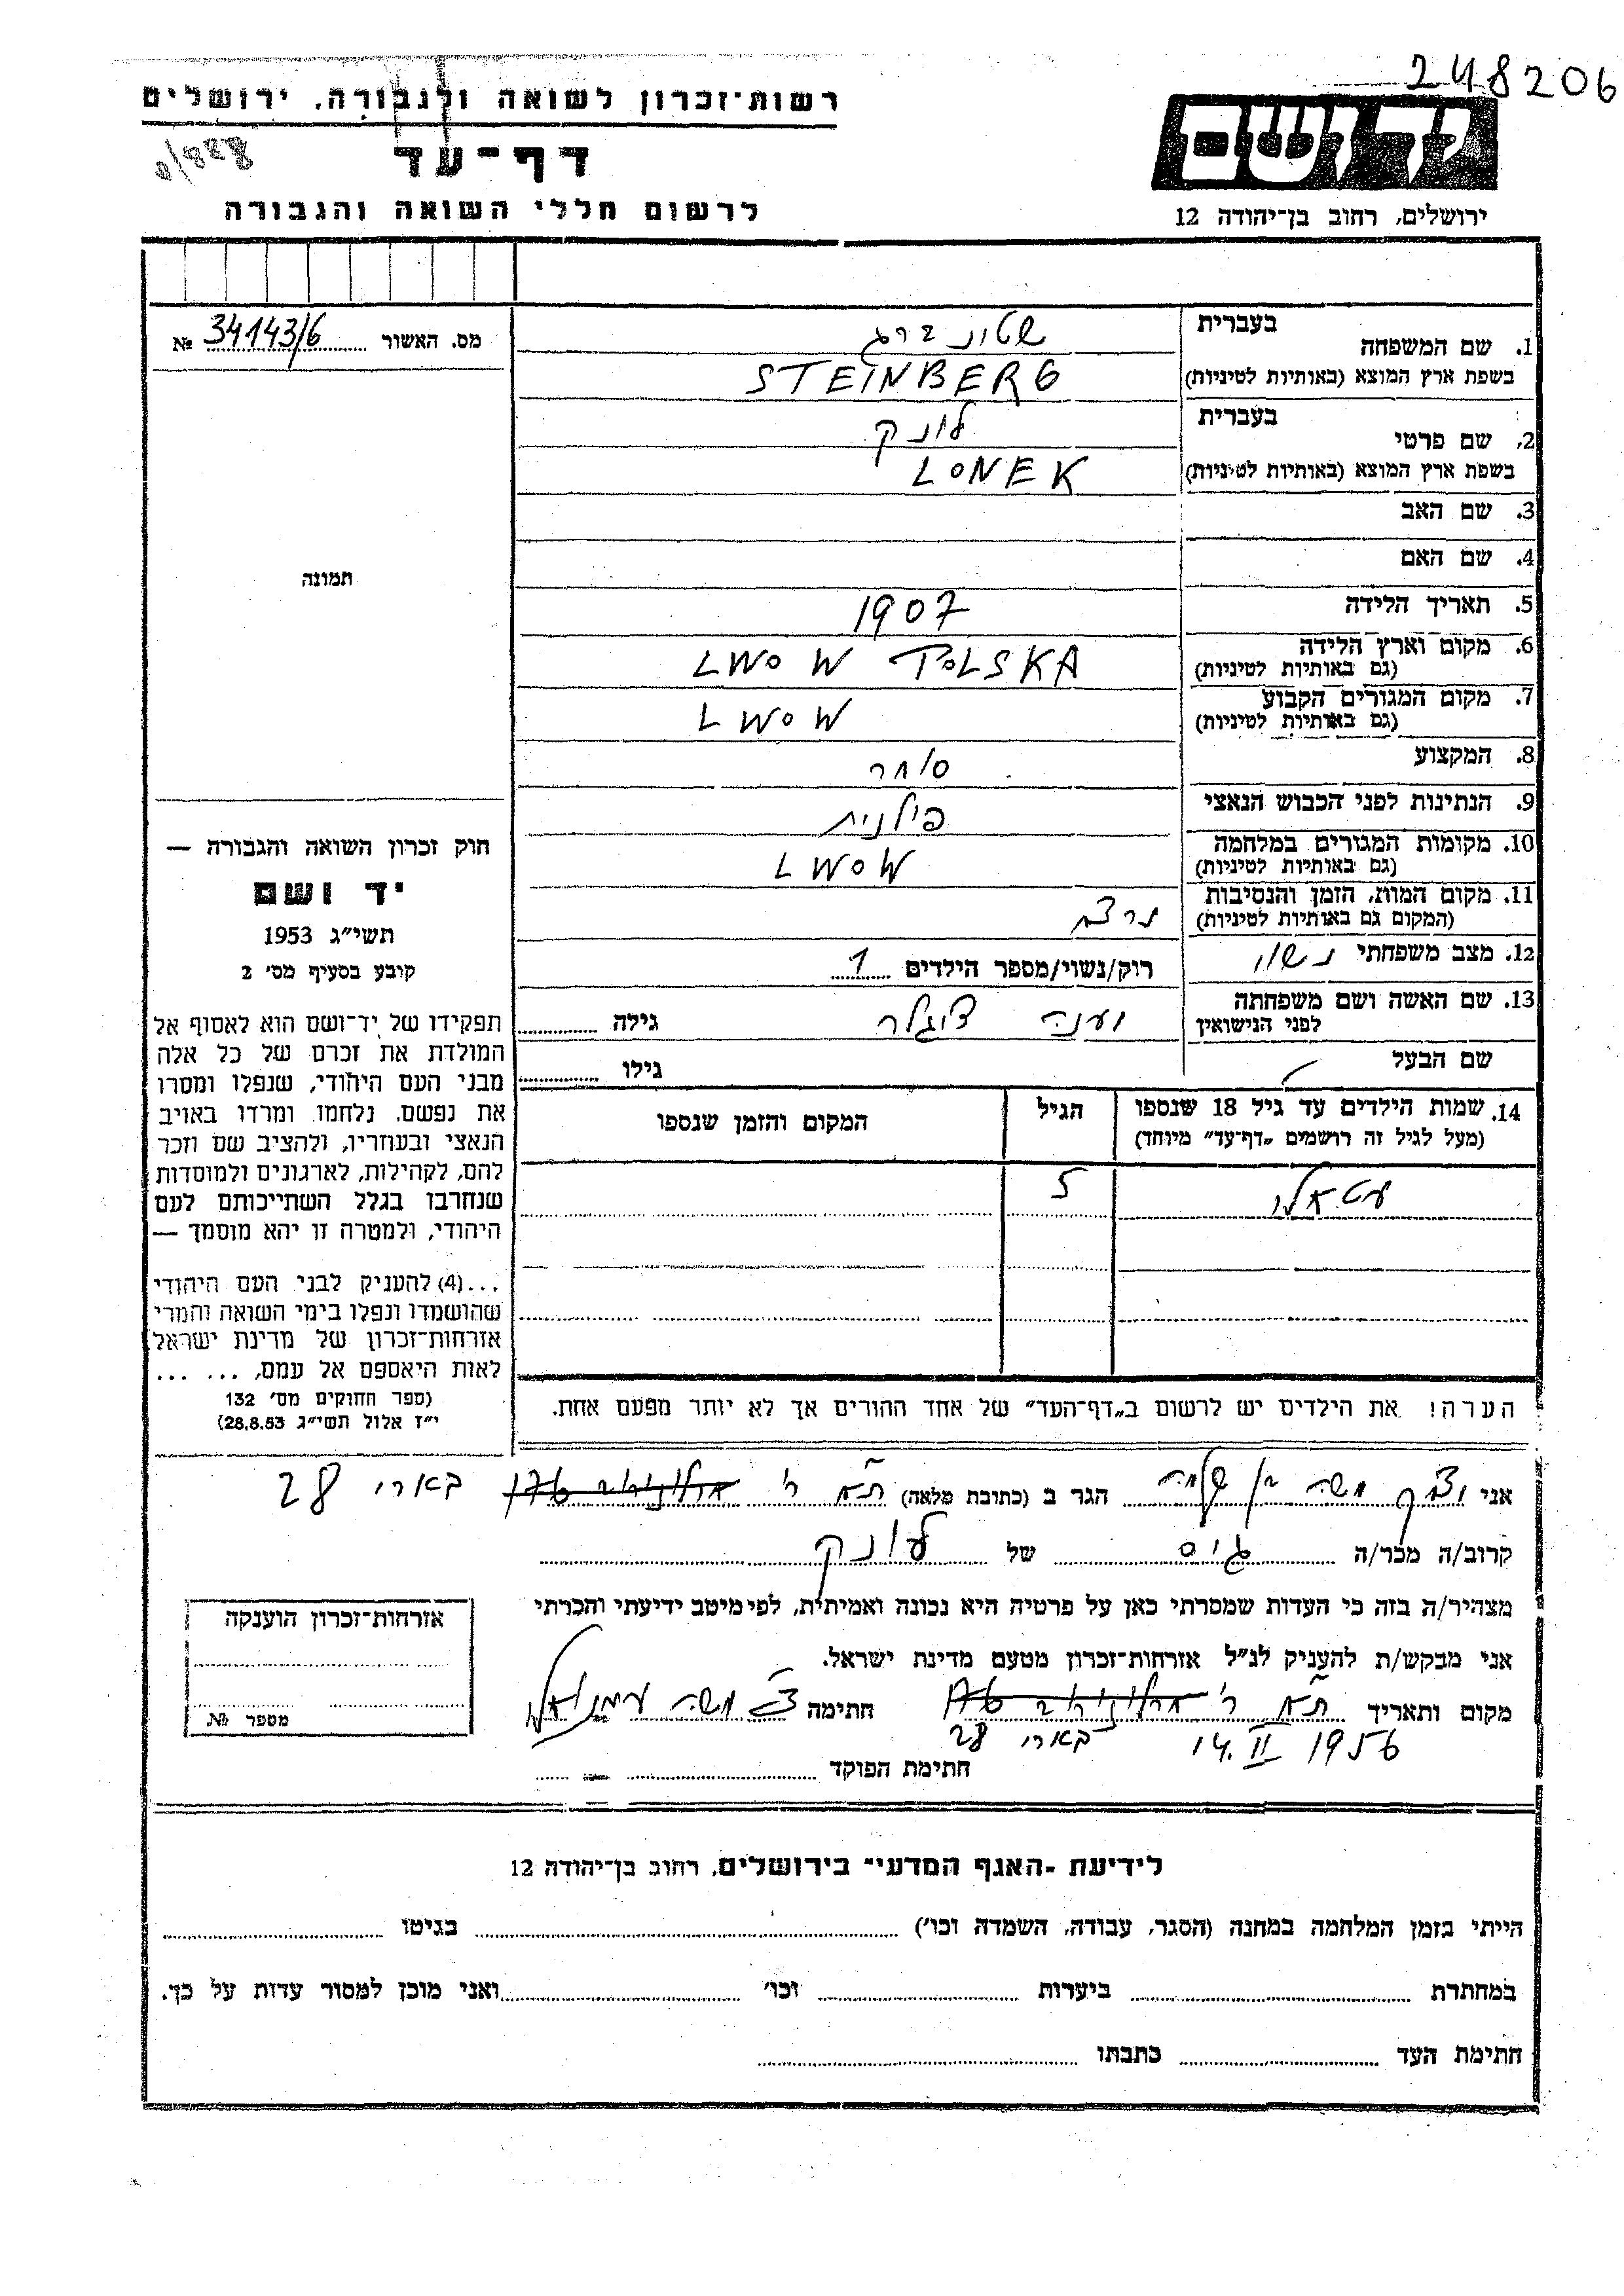 248206
רשות־זכרון לשואה ולגבורה, ירושלים
יד ושם
דף־עד
ירושלים, רחוב בן־יהודה 12
לרשום חללי השואה והגבורה
מס. האשור 34143/6 №
תמונה
חוק זכרון השואה והגבורה —
יד ושם
תשי״ג 1953
קובע בסעיף מס׳ 2
תפקידו של יד־ושם הוא לאסוף אל
המולדת את זכרם של כל אלה
מבני העם היהודי, שנפלו ומסרו
את נפשם, נלחמו ומרדו באויב
הנאצי ובעוזריו, ולהציב שם וזכר
להם, לקהילות, לארגונים ולמוסדות
שנחרבו בגלל השתייכותם לעם
היהודי, ולמטרה זו יהא מוסמך —
...(4) להעניק לבני העם היהודי
שהושמדו ונפלו בימי השואה והמרי
אזרחות־זכרון של מדינת ישראל
לאות היאספם אל עמם, ... ...
(ספר החוקים מס׳ 132
י״ז אלול תשי״ג 28.8.53)
1. שם המשפחה בעברית שטינברג
בשפת ארץ המוצא (באותיות לטיניות) STEINBERG
2. שם פרטי בעברית לונק
בשפת ארץ המוצא (באותיות לטיניות) LONEK
3. שם האב
4. שם האם
5. תאריך הלידה 1907
6. מקום וארץ הלידה (גם באותיות לטיניות) LWOW POLSKA
7. מקום המגורים הקבוע (גם באותיות לטיניות) LWOW
8. המקצוע סוחר
9. הנתינות לפני הכבוש הנאצי פולנית
10. מקומות המגורים במלחמה (גם באותיות לטיניות) LWOW
11. מקום המות, הזמן והנסיבות (המקום גם באותיות לטיניות)
12. מצב משפחתי נשוי רוק/נשוי/מספר הילדים 1
13. שם האשה ושם משפחתה לפני הנישואין ציגלר גילה
שם הבעל גילו
14. שמות הילדים עד גיל 18 שנספו הגיל המקום והזמן שנספו
(מעל לגיל זה רושמים „דף־עד״ מיוחד)
5
הערה! את הילדים יש לרשום ב„דף־העד״ של אחד ההורים אך לא יותר מפעם אחת.
אני משה בן שלמה הגר ב (כתובת מלאה) ת״א ר׳ ארלוזורוב בארי 28
קרוב/ה מכר/ה גיס של לונק
מצהיר/ה בזה כי העדות שמסרתי כאן על פרטיה היא נכונה ואמיתית, לפי מיטב ידיעתי והכרתי
אני מבקש/ת להעניק לנ״ל אזרחות־זכרון מטעם מדינת ישראל.
מקום ותאריך ת״א ר׳ ארלוזורוב חתימה
בארי 28
14. II 1956
חתימת הפוקד
אזרחות־זכרון הוענקה
מספר №
לידיעת ״האגף המדעי״ בירושלים, רחוב בן־יהודה 12
הייתי בזמן המלחמה במחנה (הסגר, עבודה, השמדה וכו׳) בגיטו
במחתרת ביערות וכו׳ ואני מוכן למסור עדות על כך.
חתימת העד כתבתו